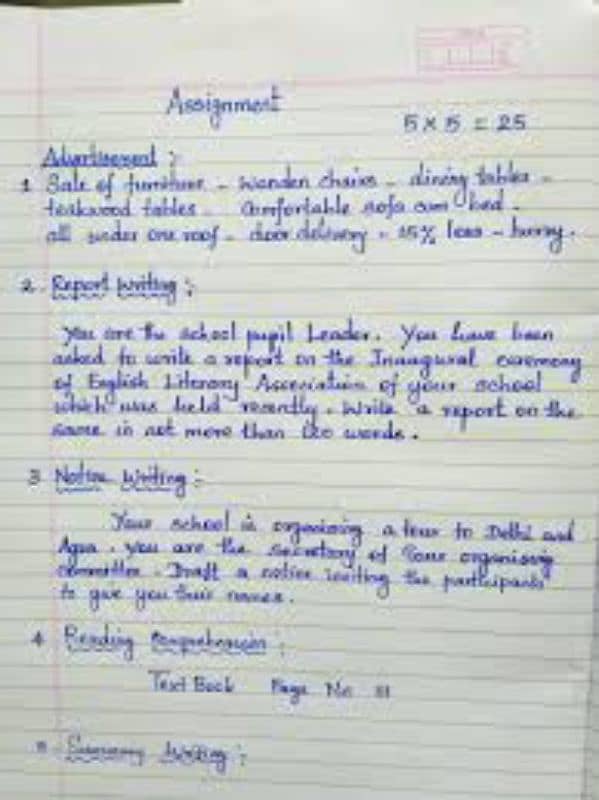 Assignment
5 × 5 = 25
Advertisement :
1 Sale of furniture - wooden chairs - dining tables -
teakwood tables - Comfortable sofa cum bed -
all under one roof - door delivery - 15% less - hurry.
2 Report Writing :
You are the school pupil Leader. You have been
asked to write a report on the Inaugural ceremony
of English Literary Association of your school
which was held recently. Write a report on the
same in not more than 120 words.
3 Notice Writing :
Your school is organising a tour to Delhi and
Agra. You are the secretary of tour organising
committee. Draft a notice inviting the participants
to give you their names.
4 Reading Comprehension :
Text Book Page No
Summary Writing :